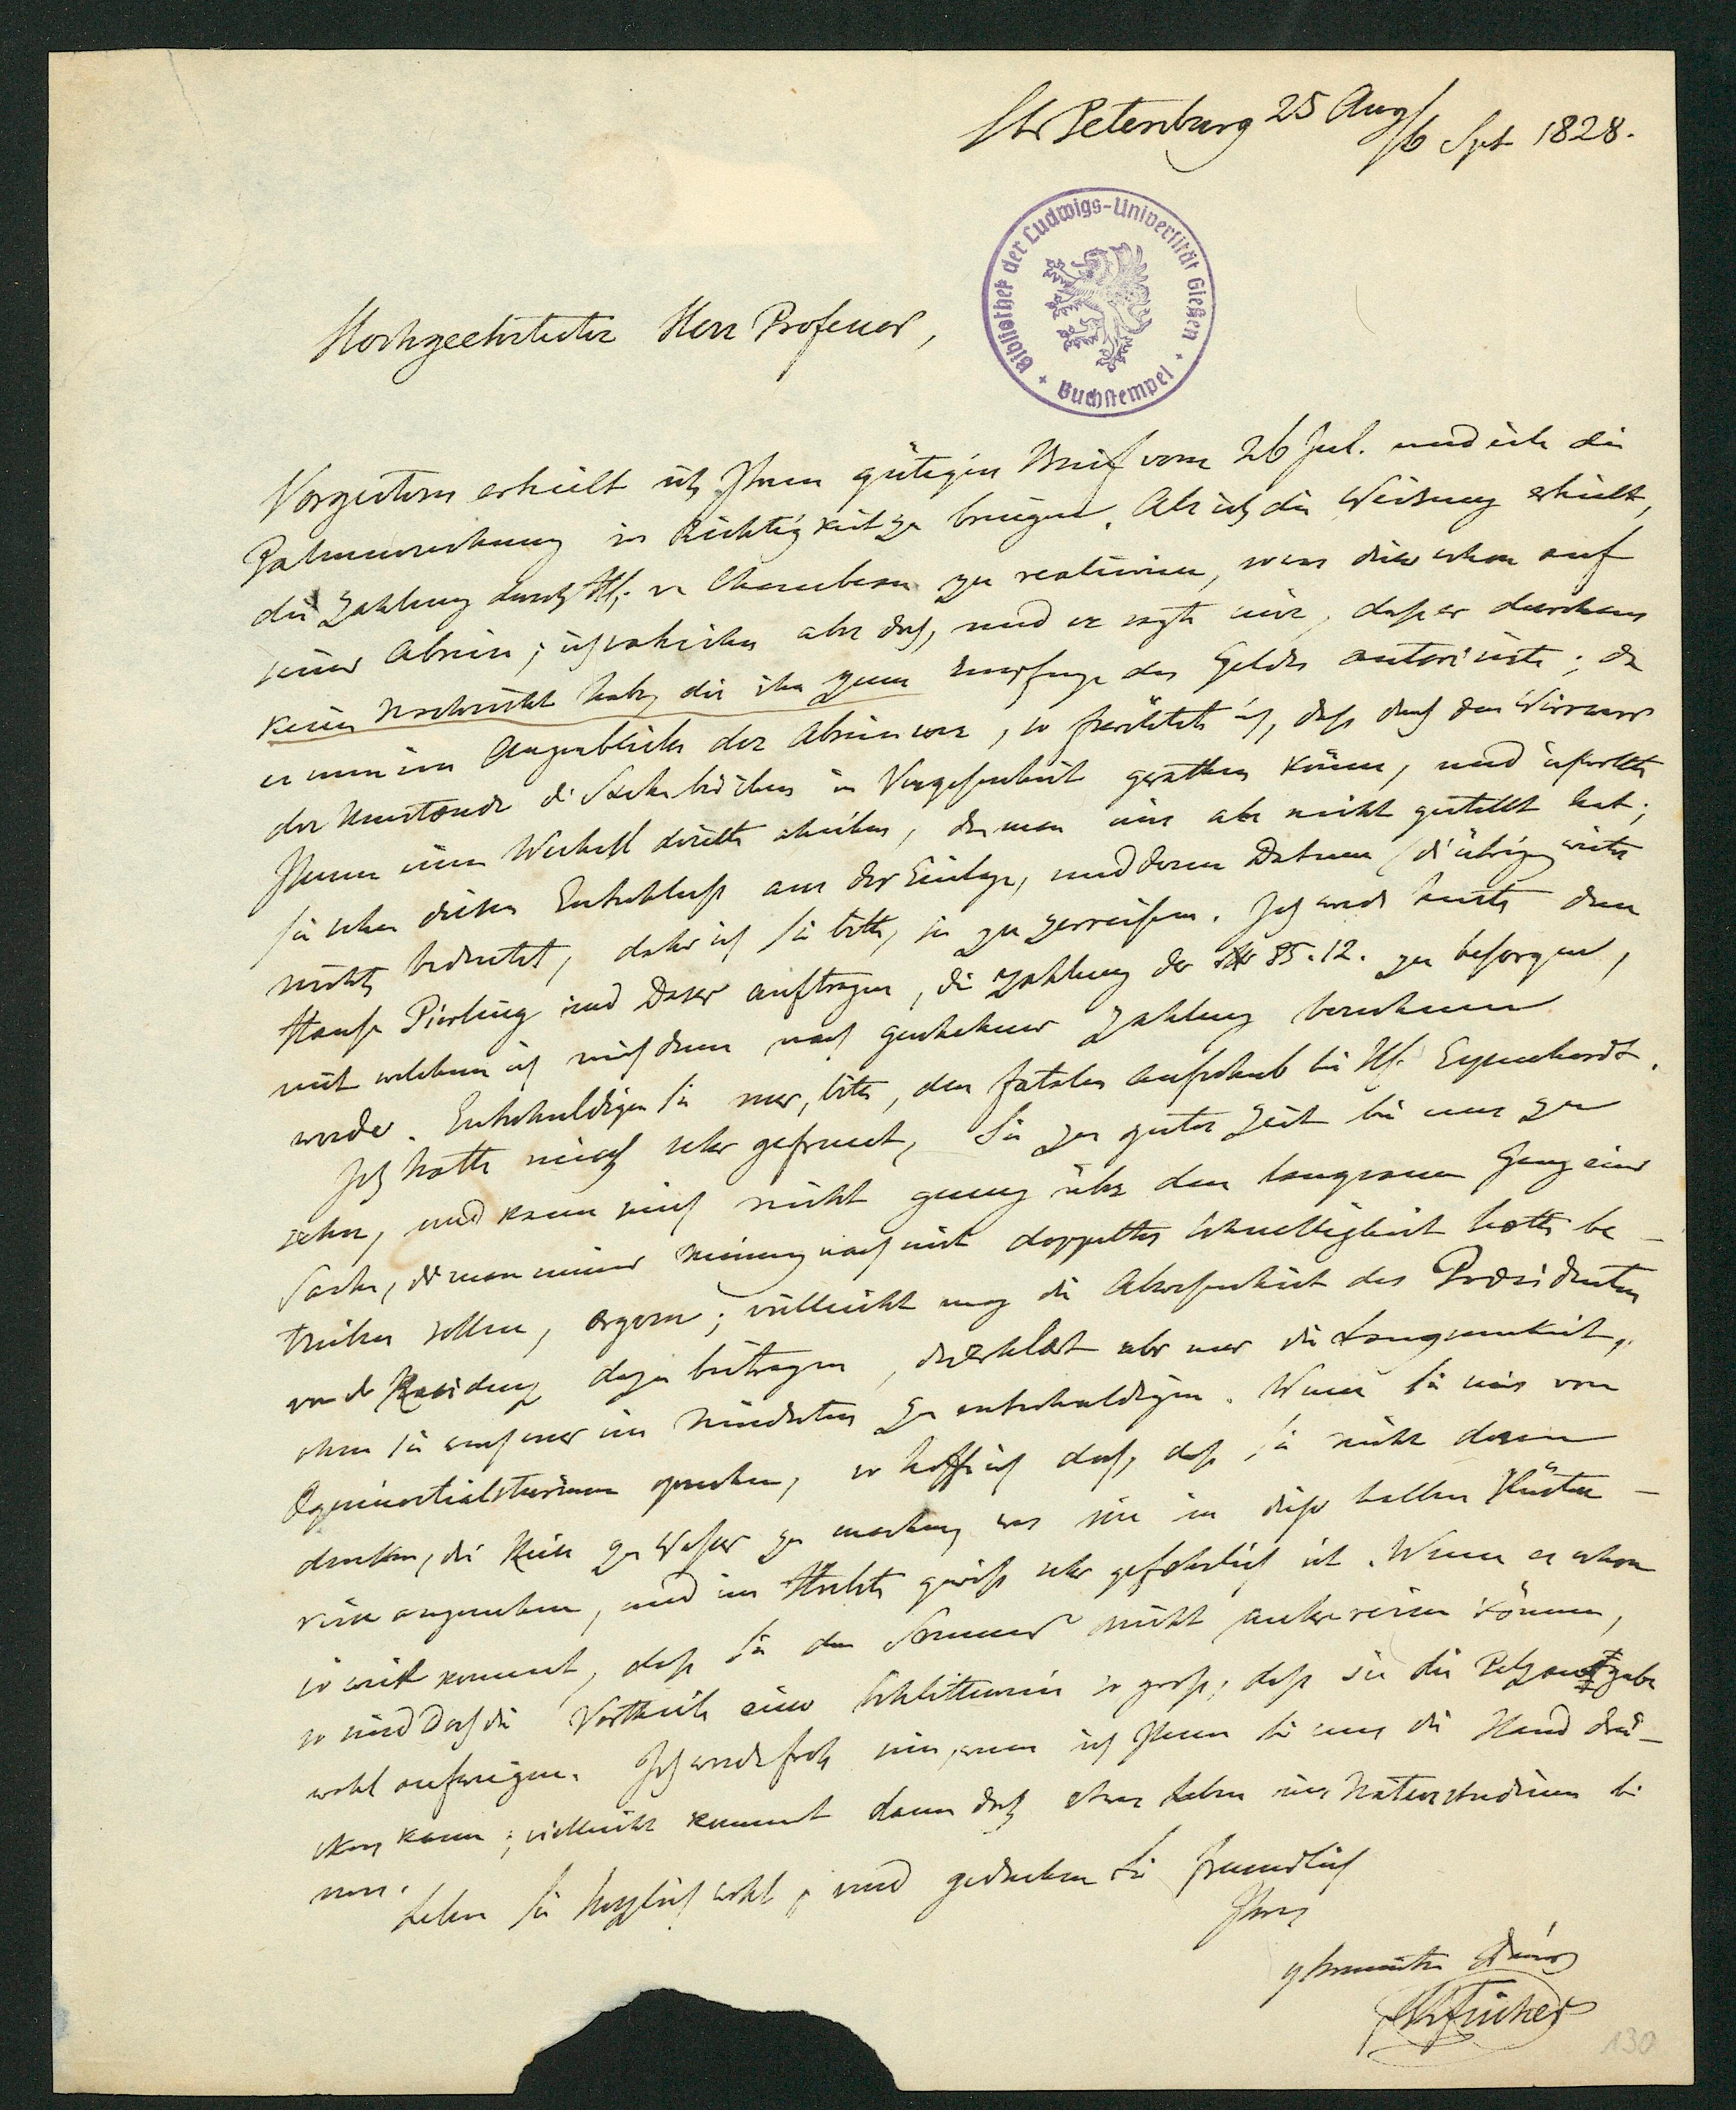 St Petersburg 25 Aug/6 Sept 1828.
Bibliothek der Ludwigs-Universität Gießen
Buchstempel
Hochgeehrtester Herr Professor,
Vorgestern erhielt ich Ihren gütigen Brief vom 26 Jul. und eile die
Palmenrechnung in Richtigkeit zu bringen. Als ich die Weisung erhielt,
die Zahlung durch H. v. Chamisso zu realisiren, war dieser schon auf
seiner Abreise; ich schrieb aber doch, und er sagte mir, daß er durchaus
keine Nachricht habe, die ihn zum Empfange des Geldes autorisirte; da
er nun im Augenblicke der Abreise war, so fürchtete ich, daß durch den Wirrwarr
der Umstände die Sache bleiben in Vergessenheit gerathen könne, und ich wollte
Ihnen einen Wechsel direkte schicken, den man mir aber nicht gestellt hat;
Sie sehen diesen Entschluß aus der Einlage, und deren Datum (die übrigens weiter
nichts bedeutet, daher ich Sie bitte, sie zu zerreißen. Ich werde heute dem
Hause Pierling und Daser auftragen, die Zahlung der 85.12. zu besorgen,
mit welchem ich mich dann nach geschehener Zahlung berechnen
werde. Entschuldigen Sie nur, bitte, den fatalen Aufschub bei H. Eysenhardt.
Ich hatte mich sehr gefreut, Sie zu guter Zeit bei uns zu
sehen, und kann mich nicht genug über den langsamen Gang einer
Sache, die man meiner Meinung nach mit doppelter Schnelligkeit hätte be-
treiben sollen, ärgern; vielleicht mag die Abwesenheit des Praesidenten
von der Residenz dazu beitragen, dies erklärt aber nur die Langsamkeit,
ohne sie auch nur im Mindesten zu entschuldigen. Wenn Sie mir von
Aequinoctialstürmen sprechen, so hoffe ich doch, daß Sie nicht daran
denken, die Reise zu Wasser zu machen, was nie in dieser halben Küsten-
reise angenehm, und im Herbste gewiß sehr gefährlich ist. Wenn es schon
so weit kommt, daß Sie den Sommer nicht mehr reisen können,
so sind doch die Vortheile einer Schlittenreise so groß, daß sie die Pelzausgabe
wohl aufwiegen. Ich werde froh sein, wenn ich Ihnen bei uns die Hand drü-
cken kann; vielleicht kommt dann doch etwas Leben ins Naturstudium bei
uns.
Leben Sie herzlich wohl, und gedenken Sie freundlich
Ihres
gehorsamsten Dieners
Fischer
130